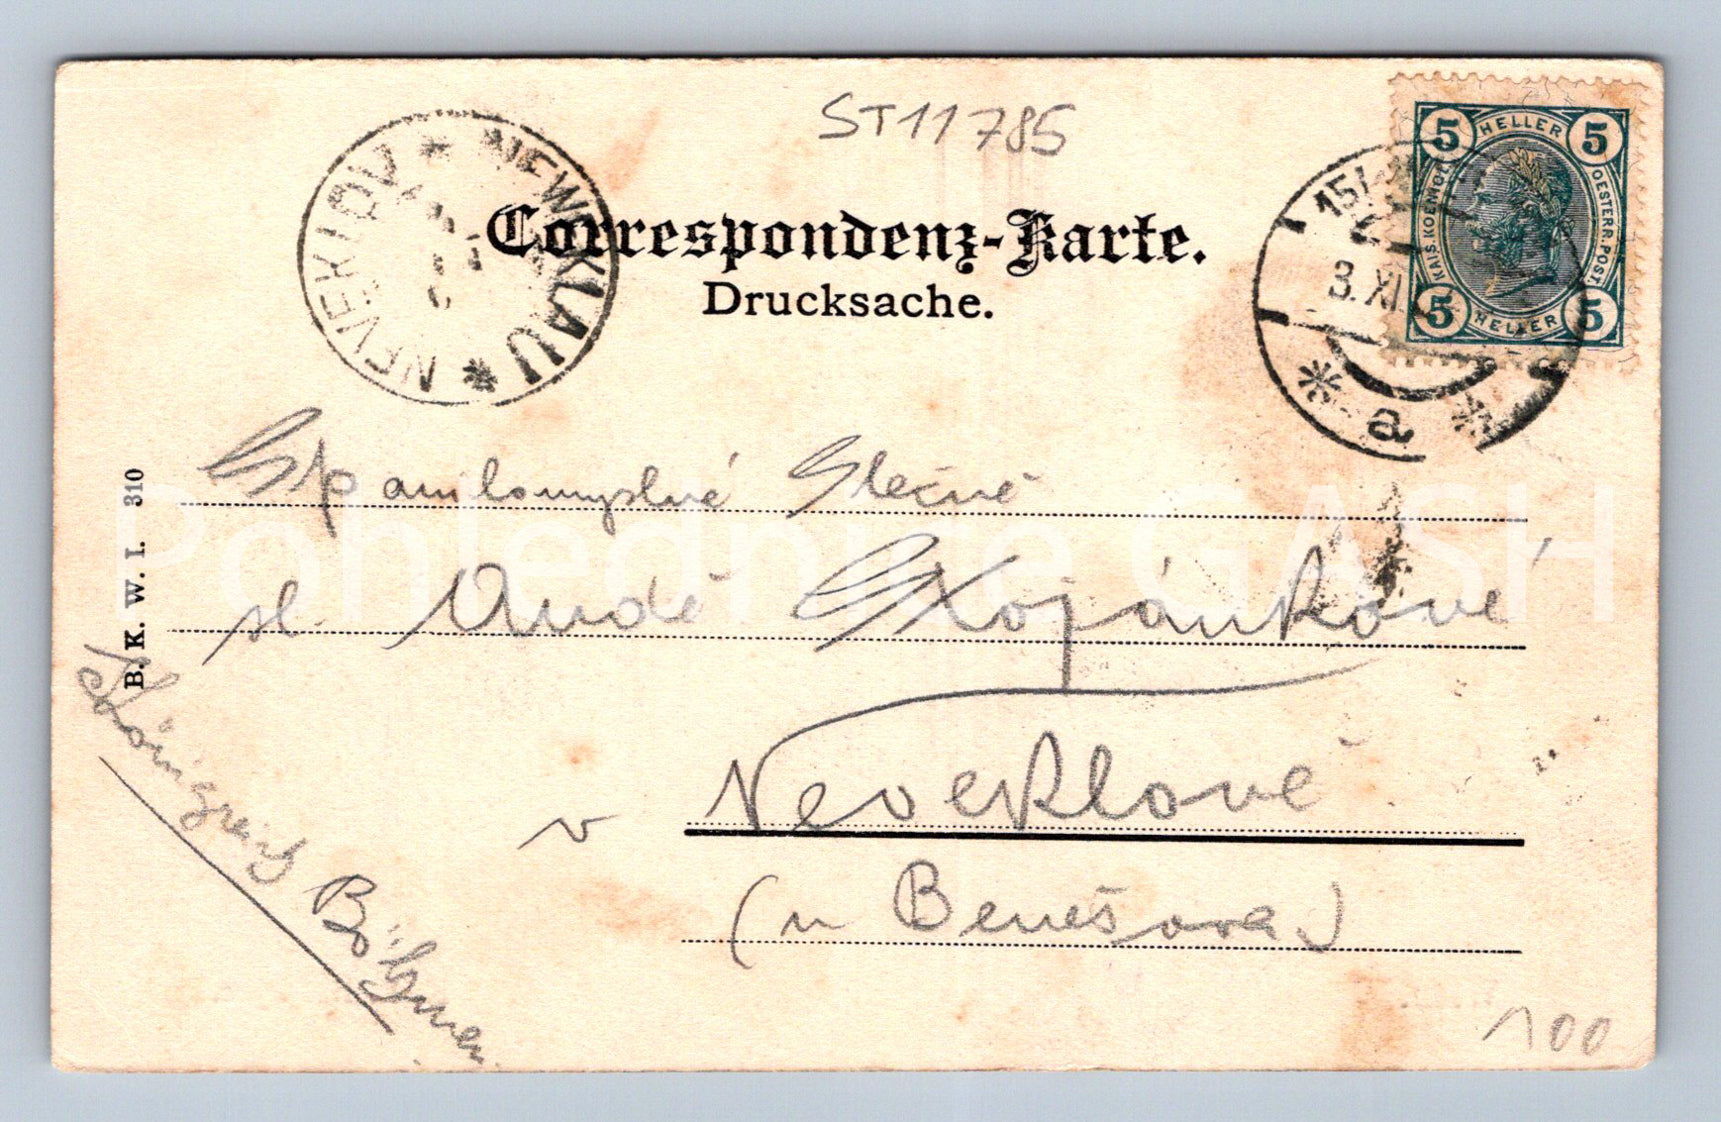 ST11785
NEVEKLOV * NEWEKLAU *
Correspondenz-Karte.
Drucksache.
5 HELLER 5
KAIS. KOENIGL. OESTERR. POST.
5 HELLER 5
15/
3. XI
* a *
B. K. W. I. 310
Pohlednice GASH
slečně
sl. Andě
v Neveklově
(u Benešova)
Königgrätz Böhmen
100